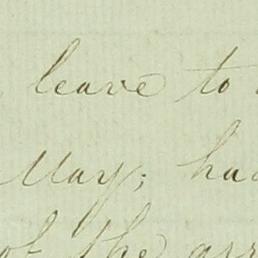 leave to
May; had
of the arr